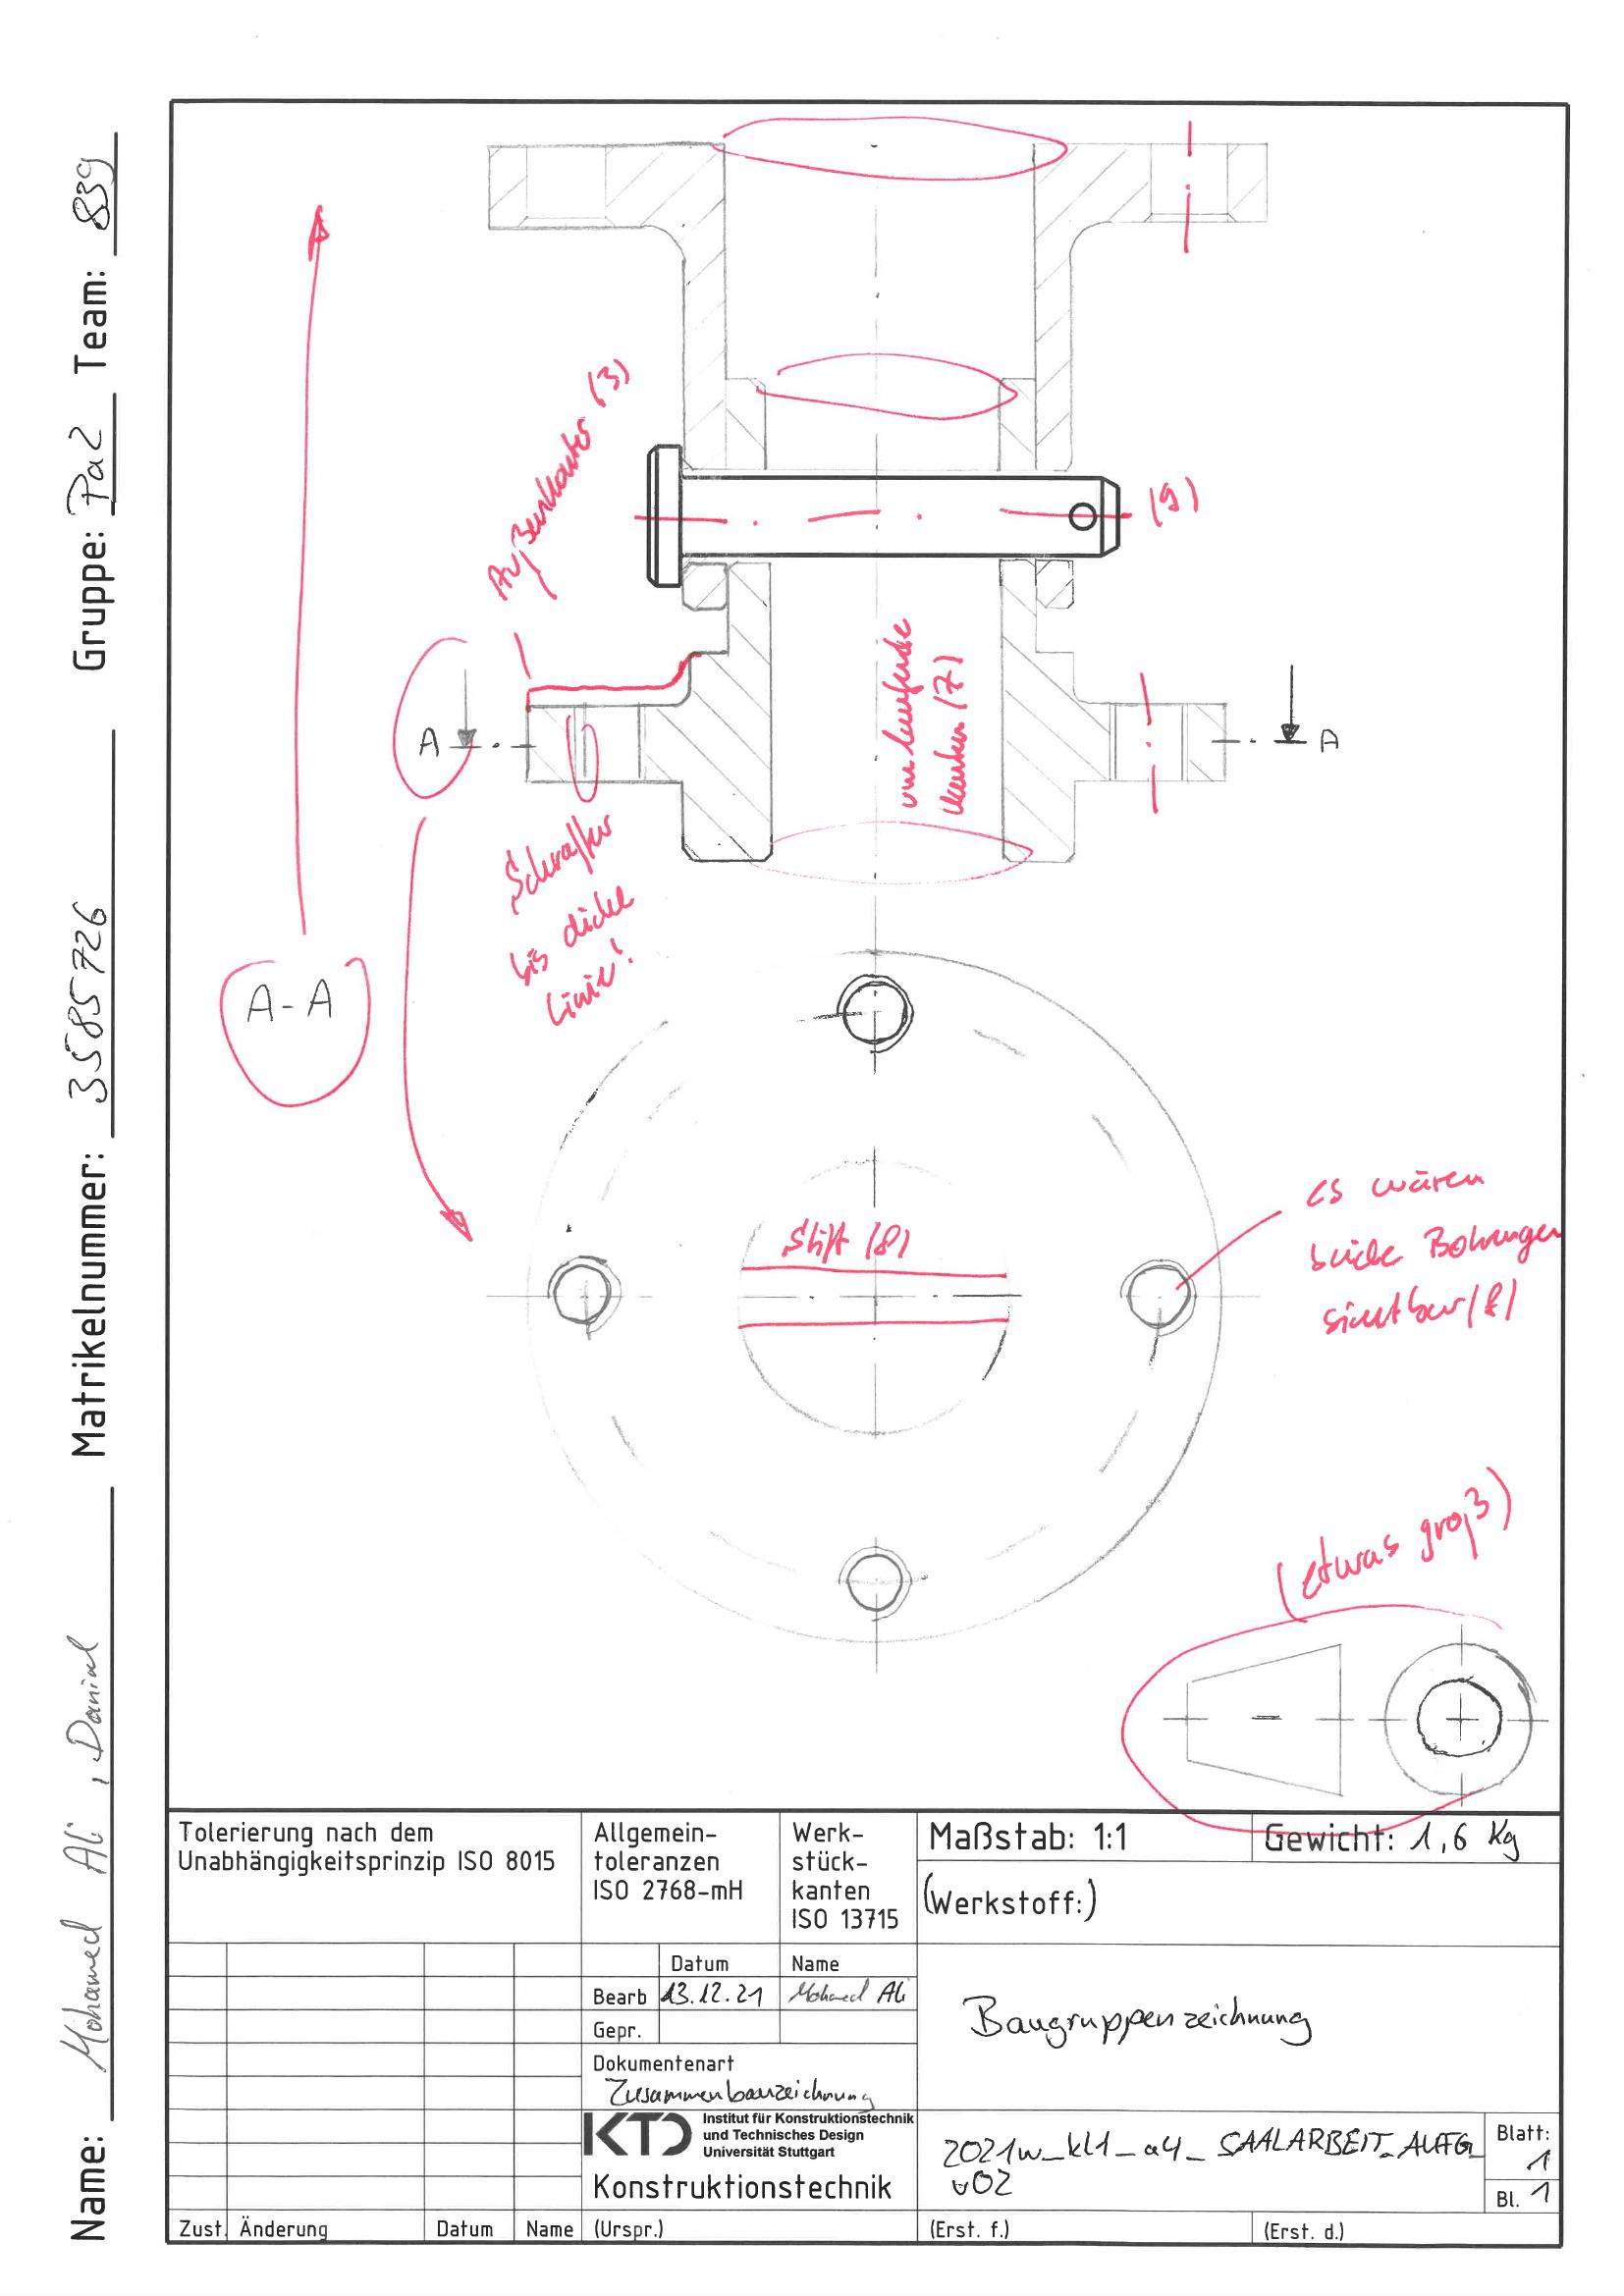 Name: Mohamed Ali, Danial Matrikelnummer: 3585726 Gruppe: Pa2 Team: 839
Außenkonter (3)
(9)
A
A
umlaufende
Kanten (7)
Schraffur
bis dicke
Linie!
A-A
Stift (8)
es wären
beide Bohrungen
sichtbar (8)
(etwas groß)
Tolerierung nach dem
Unabhängigkeitsprinzip ISO 8015
Allgemein-
toleranzen
ISO 2768-mH
Werk-
stück-
kanten
ISO 13715
Maßstab: 1:1
Gewicht: 1,6 Kg
(Werkstoff:)
Datum Name
Bearb 13.12.21 Mohamed Ali
Gepr.
Baugruppenzeichnung
Dokumentenart
Zusammenbauzeichnung
KTD Institut für Konstruktionstechnik
und Technisches Design
Universität Stuttgart
Konstruktionstechnik
2021w_kl1_a4_SAALARBEIT_AUFG_
v02
Blatt:
1
Bl. 1
Zust. Änderung Datum Name (Urspr.) (Erst. f.) (Erst. d.)